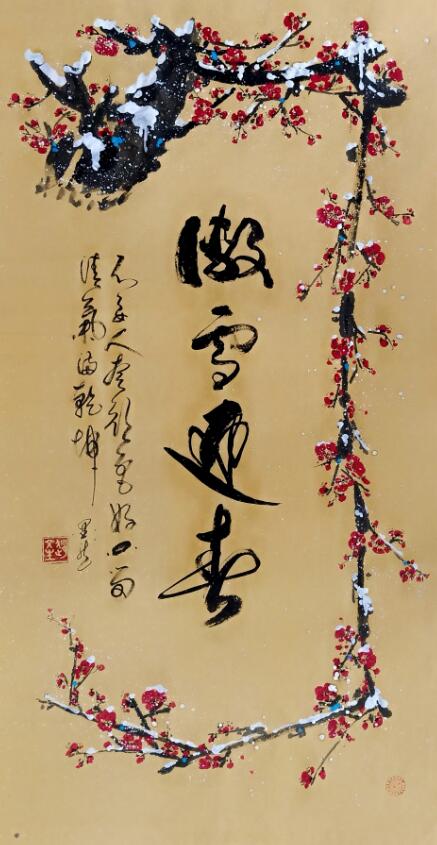 傲雪迎春
不要人夸颜色好只留
清氣满乾坤